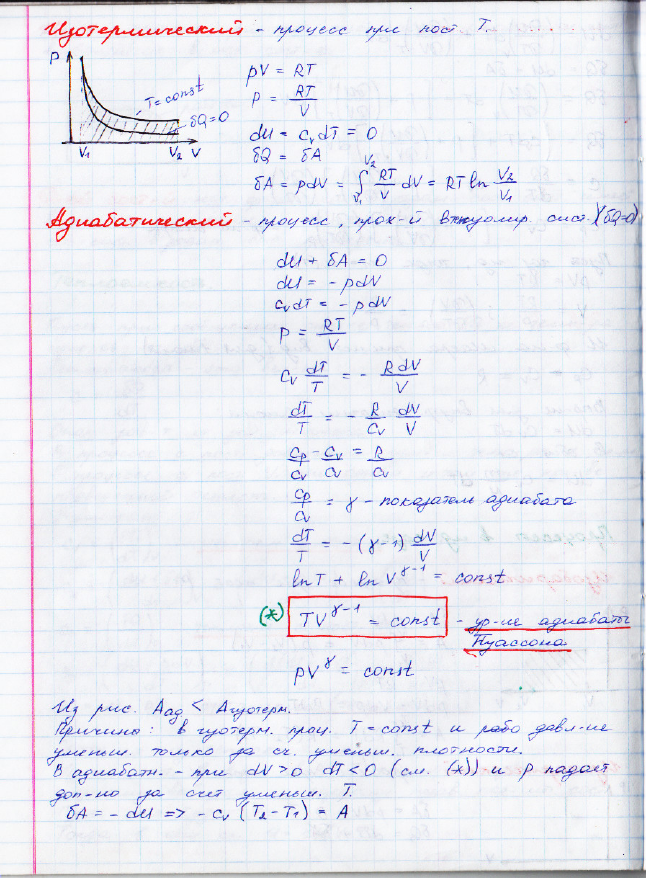 Изотермический - процесс при пост. T.
P
T = const
δQ = 0
V₁ V₂ V
pV = RT
P = RT/V
dU = cᵥdT = 0
δQ = δA
δA = pdV = ∫_{V₁}^{V₂} RT/V dV = RT ln V₂/V₁
Адиабатический - процесс, прох-й в сист. (δQ=0)
dU + δA = 0
dU = - pdV
cᵥdT = - pdV
P = RT/V
cᵥ dT/T = - RdV/V
dT/T = - R/cᵥ dV/V
cₚ/cᵥ - cᵥ/cᵥ = R/cᵥ
cₚ/cᵥ = γ - показатель адиабата
dT/T = - (γ-1) dV/V
ln T + ln V^{γ-1} = const
(*) TV^{γ-1} = const - ур-ие адиабаты
Пуассона
pV^γ = const
Из рис. Aад < Aизотерм.
Причина: в изотерм. проц. T = const и давл-ие
уменьш. только за сч. уменьш. плотности.
В адиабатн. - при dV>0 dT<0 (см. (*)) и p падает
доп-но за счет уменьш. T.
δA = - dU => - cᵥ (T₂-T₁) = A